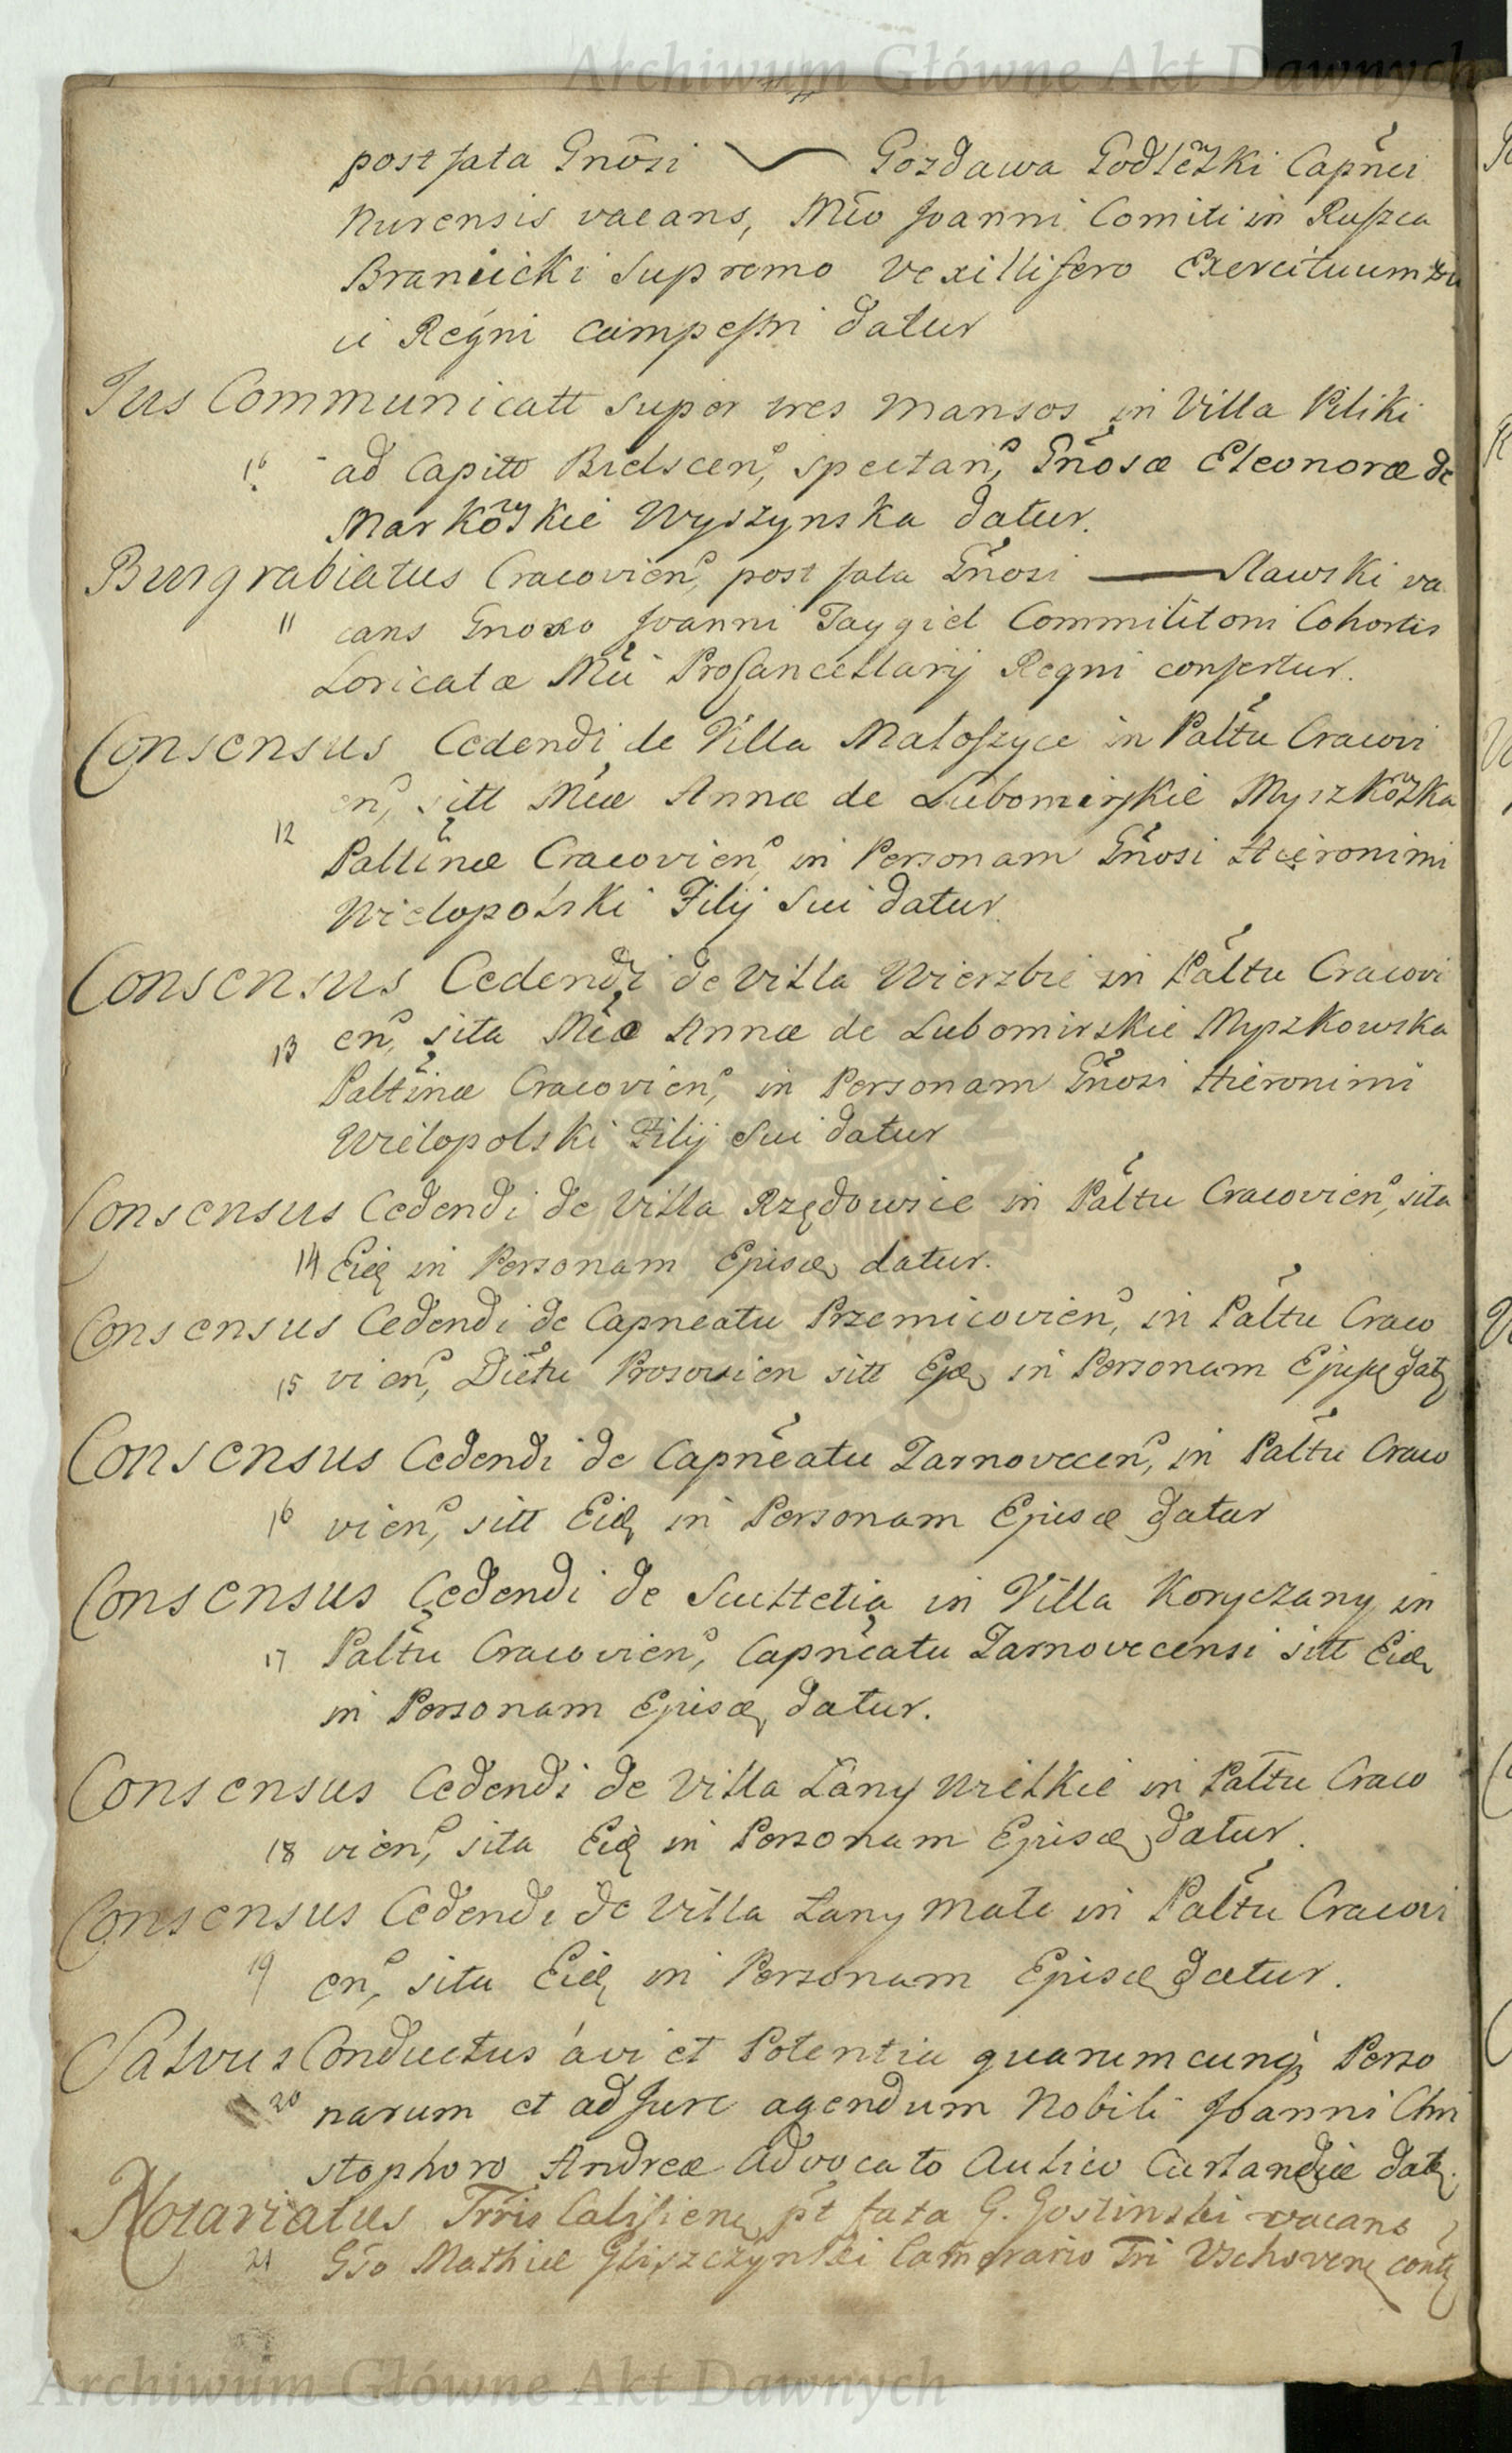 Archiwum Główne Akt Dawnych
post fata Gnosi Gozdawa Godlewski Capnei
Nurensis vacans, Mco Joanni Comiti in Ruszca
Branicki Supremo Vexillifero Exercituum
Regni campestri datur
Jus Communicatt super tres mansos in Villa Piliki
ad Capitt Bielscen, spectan, Gnosæ Eleonoræ de
Markowskie Wyszynska datur.
Burgrabiatus Cracovien, post fata Gnosi Slawski va
11 cans Gnoso Joanni Taygiel Commilitoni Cohortis
Loricatæ Mci Procancellarij Regni confertur.
Consensus Cedendi de Villa Małoszyce in Paltu Cracovi
en, sitt Mcæ Annæ de Lubomirskie Myszkowska
12
Paltinæ Cracovien, in Personam Gnosi Hieronimi
Wielopolski Filij Sui datur.
Consensus Cedendi de Villa Wierzbie in Paltu Cracovi
13 en, sita Mcæ Annæ de Lubomirskie Myszkowska
Paltinæ Cracovien, in Personam Gnosi Hieronimi
Wielopolski Filij Sui datur
Consensus Cedendi de Villa Rzędowice in Paltu Cracovien, sita
14 Eid in Personam Ejusd datur.
Consensus Cedendi de Capneatu Przemicovien, in Paltu Craco
15 vien, Dictu Prosovien sitt in Personam datq
Consensus Cedendi de Capneatu Zarnovecen, in Paltu Craco
16 vien, sitt Eid in Personam Ejusd datur
Consensus Cedendi de Scultetia in Villa Koryczany in
17 Paltu Cracovien, Capneatu Zarnovecensi sitt Eid
in Personam Ejusd datur.
Consensus Cedendi de Villa Łany Wielkie in Paltu Craco
18 vien, sita Eid in Personam Ejusd datur.
Consensus Cedendi de Villa Łany małe in Paltu Cracovi
19 en, sita Eid in Personam Ejusd datur.
Salvus Conductus a vi et Potentia quarumcunq Perso
20 narum et ad Jure agendum Nobili Joanni Chri
stophoro Andreæ Advocato Aulico Curlandiæ datq.
Notariatus Trris Calisien, pt fata G. Gostinski vacans
21 Gso Mathiæ Gliszczynski Camerario Tri Vschoven contq
Archiwum Główne Akt Dawnych